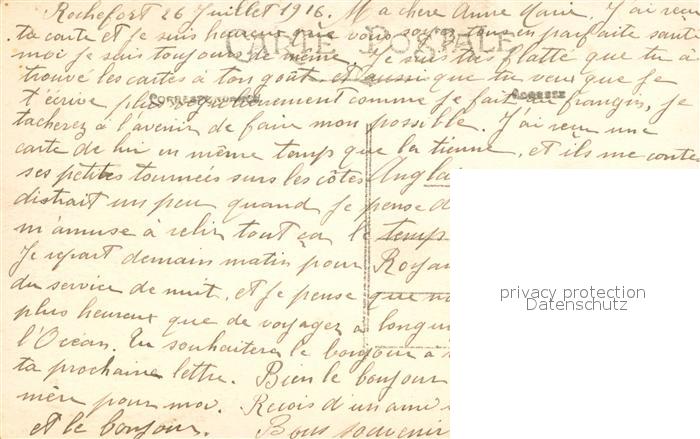 Rochefort 26 Juillet 1916. Ma chère Anne Marie, J'ai reçu
ta carte et je suis heureux que vous soyez tous en parfaite santé
moi je suis toujours de même. Je suis très flatté que tu as
trouvé les cartes à ton goût, et aussi que tu veux que je
t'écrive plus régulièrement comme je fait au frangin, je
tacherez à l'avenir de faire mon possible. J'ai reçu une
carte de lui en même temps que la tienne, et ils me conte
ses petites tournées surs les côtes Angla
distrait un peu quand je pense d
m'amuse à relir tout ça le temps
Je repart demain matin pour Royan
du service de nuit, et je pense que no
plus heureux que de voyager à longu
l'Océan. Tu souhaiteras le bonjour à
ta prochaine lettre. Bien le bonjour
mère pour moi. Reçois d'un ami
et le bonjour. Bons souvenir
CARTE POSTALE
CORRESPONDANCE
ADRESSE
privacy protection
Datenschutz